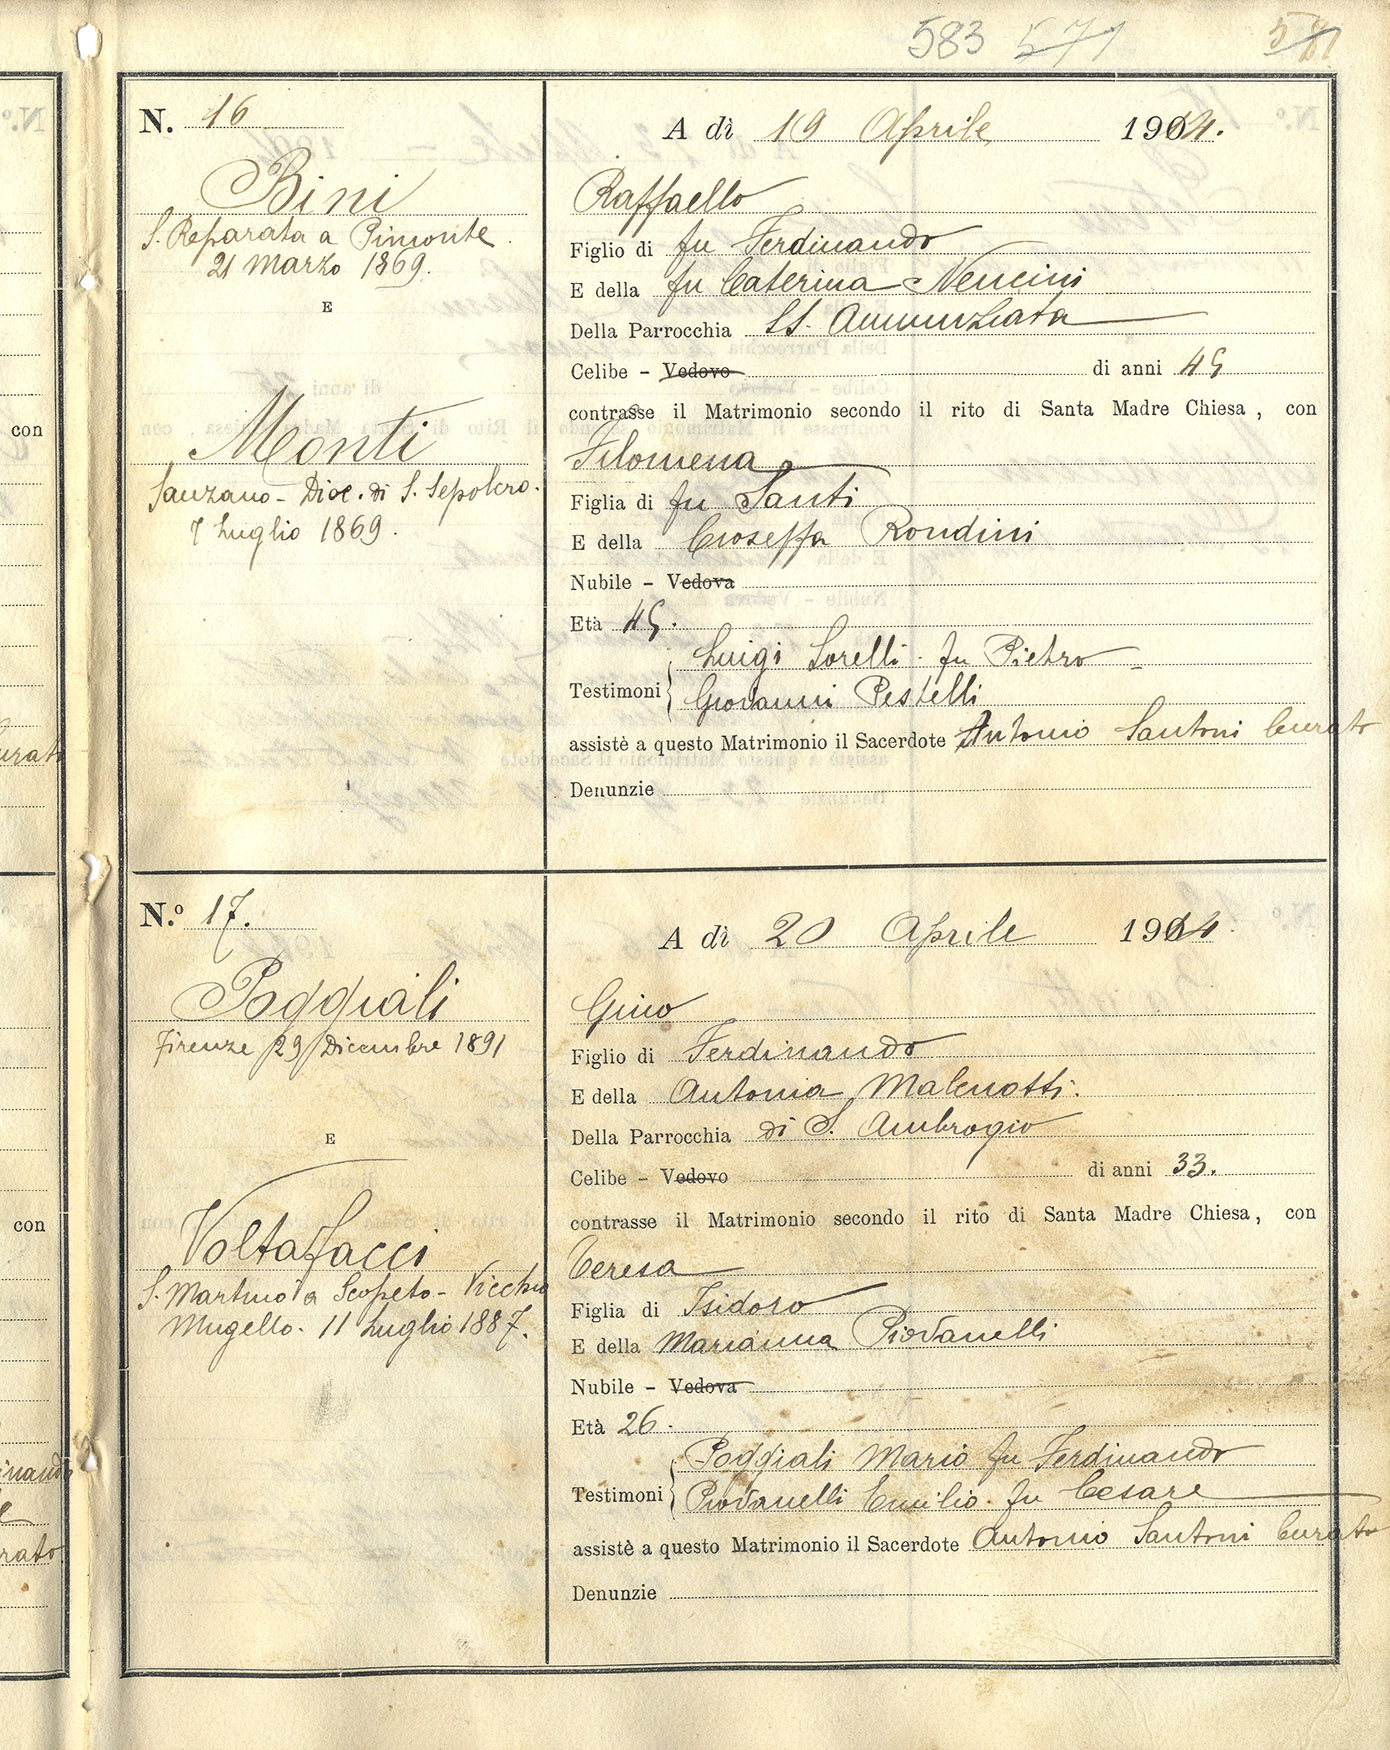 583 571 581
N. 16
Bini
S. Reparata a Pimonte
21 Marzo 1869.
E
Monti
Sanzano - Dioc. di S. Sepolcro.
7 Luglio 1869.
A dì 19 Aprile 1914.
Raffaello
Figlio di fu Ferdinando
E della fu Caterina Nencini
Della Parrocchia SS. Annunziata
Celibe - Vedovo di anni 45
contrasse il Matrimonio secondo il rito di Santa Madre Chiesa, con
Filomena
Figlia di fu Santi
E della Gioseffa Rondini
Nubile - Vedova
Età 45.
Luigi Sorelli fu Pietro
Testimoni
Giovanni Pestelli
assistè a questo Matrimonio il Sacerdote Antonio Santoni Curato
Denunzie
N.º 17.
Poggiali
Firenze 29 Dicembre 1891
E
Voltafacci
S. Martino a Scopeto - Vicchio
Mugello. 11 Luglio 1887.
A dì 20 Aprile 1914
Gino
Figlio di Ferdinando
E della Antonia Malenotti.
Della Parrocchia di S. Ambrogio
Celibe - Vedovo di anni 33.
contrasse il Matrimonio secondo il rito di Santa Madre Chiesa, con
Teresa
Figlia di Isidoro
E della Marianna Piovanelli
Nubile - Vedova
Età 26.
Poggiali Mario fu Ferdinando
Testimoni
Piovanelli Emilio fu Cesare
assistè a questo Matrimonio il Sacerdote Antonio Santoni Curato
Denunzie
con
urato
con
rato